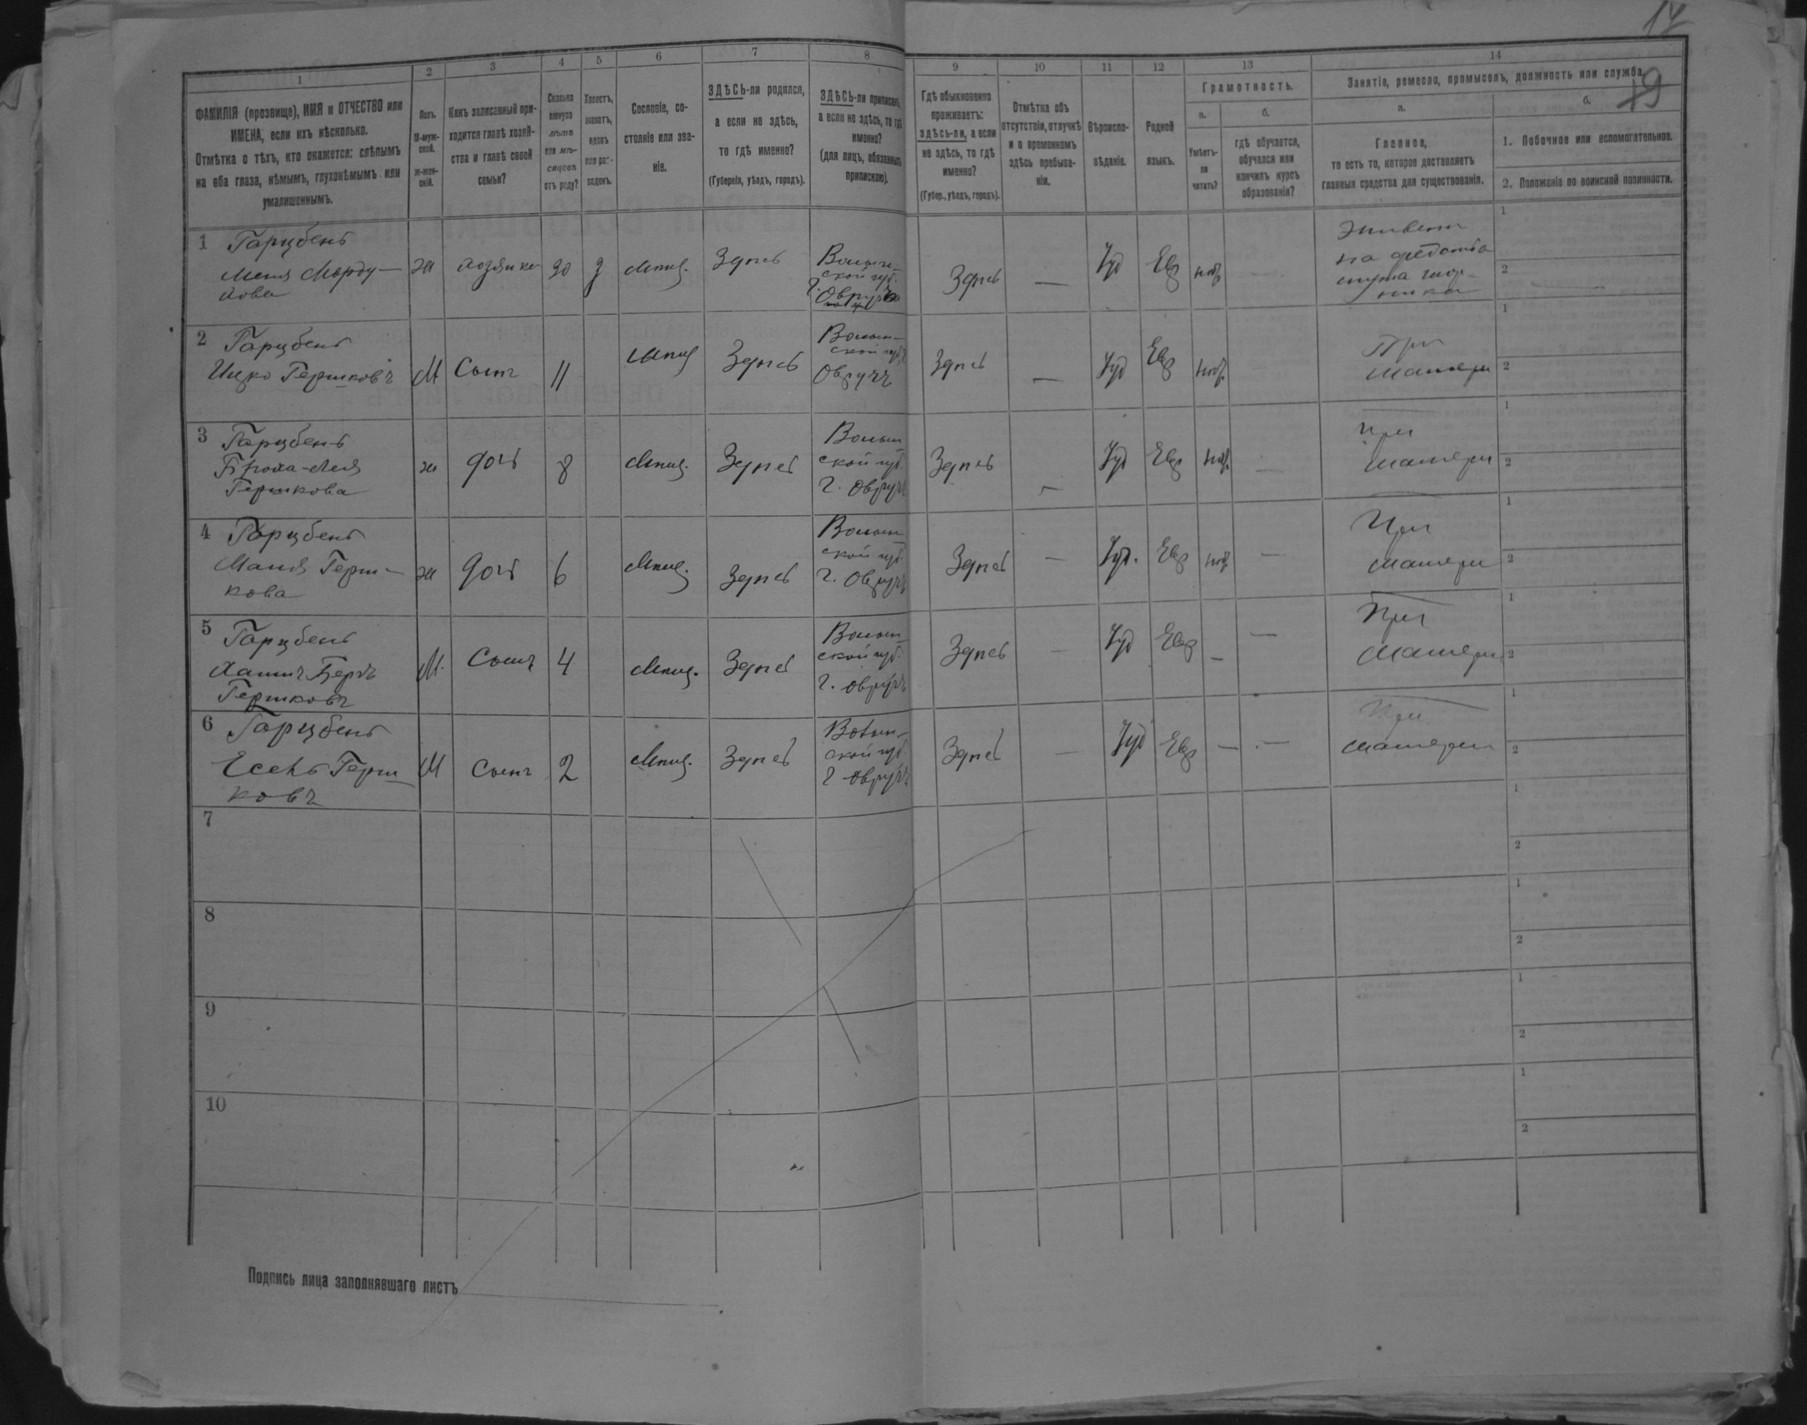 17
19
1
2
3
4
5
6
7
8
9
10
11
12
13
14
ФАМИЛІЯ (прозвище), ИМЯ и ОТЧЕСТВО или
ИМЕНА, если ихъ нѣсколько.
Отмѣтка о тѣхъ, кто окажется: слѣпымъ
на оба глаза, нѣмымъ, глухонѣмымъ или
умалишеннымъ.
Полъ.
М-муж-
ской.
Ж-жен-
скій.
Какъ записанный при-
ходится главѣ хозяй-
ства и главѣ своей
семьи?
Сколько
минуло
лѣтъ
или мѣ-
сяцевъ
отъ роду?
Холостъ,
женатъ,
вдовъ
или раз-
веденъ.
Сословіе, со-
стояніе или зва-
ніе.
ЗДѢСЬ-ли родился,
а если не здѣсь,
то гдѣ именно?
(Губернія, уѣздъ, городъ).
ЗДѢСЬ-ли приписанъ,
а если не здѣсь, то гдѣ
именно?
(для лицъ, обязанныхъ
припискою).
Гдѣ обыкновенно
проживаетъ:
здѣсь-ли, а если
не здѣсь, то гдѣ
именно?
(Губер., уѣздъ, городъ).
Отмѣтка объ
отсутствіи, отлучкѣ
и о временномъ
здѣсь пребыва-
ніи.
Вѣроиспо-
вѣданіе.
Родной
языкъ.
Грамотность.
а.
Умѣетъ-
ли
читать?
б.
гдѣ обучается,
обучался или
кончилъ курсъ
образованія?
Занятіе, ремесло, промыселъ, должность или служба.
а.
Главное,
то есть то, которое доставляетъ
главныя средства для существованія.
б.
1. Побочное или вспомогательное.
2. Положеніе по воинской повинности.
1 Гарцбенъ
Меня Морду-
хова
ж хозяйка 30 з Мѣщ. Здѣсь
Волын-
ской губ.
г. Овручъ
Здѣсь — Іуд Евр
живетъ
на средства
мужа
1
2
2 Гарцбенъ
Ицко Гершковъ М Сынъ 11 мѣщ Здѣсь
Волын-
ской губ
Овручъ
Здѣсь — Іуд Евр
При
матери
1
2
3 Гарцбенъ
Броха-Лея
Гершкова
ж дочь 8 Мѣщ. Здѣсь
Волын
ской губ.
г. Овручъ
Здѣсь — Іуд Евр —
При
матери
1
2
4 Гарцбенъ
Маня Герш-
кова
ж дочь 6 Мѣщ. Здѣсь
Волын-
ской губ.
г. Овручъ
Здѣсь — Іуд. Евр —
При
матери
1
2
5 Гарцбенъ
Хаимъ Беръ
Гершковъ
М. Сынъ 4 Мѣщ. Здѣсь
Волын-
ской губ.
г. Овручъ
Здѣсь — Іуд Евр — —
При
матери
1
2
6 Гарцбенъ
Гершковъ
М Сынъ 2 Мѣщ. Здѣсь
Волын-
ской губ.
г Овручъ
Здѣсь — Іуд Евр — —
При
матери
1
2
7
1
2
8
1
2
9
1
2
10
1
2
Подпись лица заполнявшаго листъ